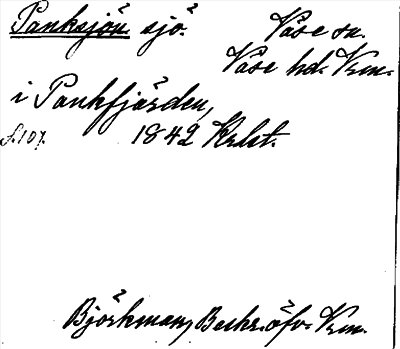 Panksjön sjö.
Väse sn.
Väse hd. Vrm.
i Pankfjärden,
s. 107. 1842 Krlst.
Björkman, Beskr. öfv. Vrm.